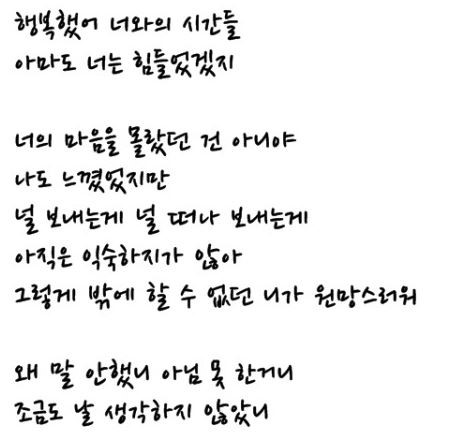 행복했어 너와의 시간들
아마도 너는 힘들었겠지
너의 마음을 몰랐던 건 아니야
나도 느꼈었지만
널 보내는게 널 떠나 보내는게
아직은 익숙하지가 않아
그렇게 밖에 할 수 없던 니가 원망스러워
왜 말 안했니 아님 못 한거니
조금도 날 생각하지 않았니